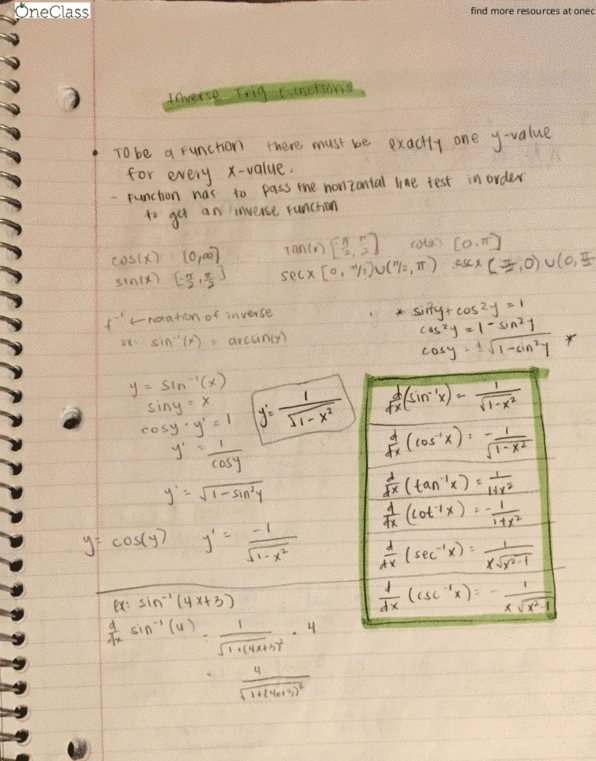 OneClass
find more resources at onec
Inverse Trig Functions
• To be a function there must be exactly one y-value
for every x-value.
- Function has to pass the horizontal line test in order
to get an inverse function
cos(x) [0,∞]
tan(x) [-π/2, π/2]
cot(x) [0,π]
sin(x) [-π/2, π/2]
sec x [0, π/2)∪(π/2, π)
csc x [-π/2, 0)∪(0, π
f⁻¹ ← Notation of inverse
ex: sin⁻¹(x) = arcsin(x)
* sin²y + cos²y = 1
cos²y = 1 - sin²y
cosy = ±√(1-sin²y) *
y = sin⁻¹(x)
siny = x
cosy · y' = 1
y' = 1/cosy
y' = √(1-sin²y)
y' = 1/√(1-x²)
y = cos(y)
y' = -1/√(1-x²)
d/dx (sin⁻¹x) = 1/√(1-x²)
d/dx (cos⁻¹x) = -1/√(1-x²)
d/dx (tan⁻¹x) = 1/(1+x²)
d/dx (cot⁻¹x) = -1/(1+x²)
d/dx (sec⁻¹x) = 1/(x√(x²-1))
d/dx (csc⁻¹x) = -1/(x√(x²-1))
ex: sin⁻¹(4x+3)
d/dx sin⁻¹(u) = 1/√(1+(4x+3)²) · 4
= 4/√(1+(4x+3)²)